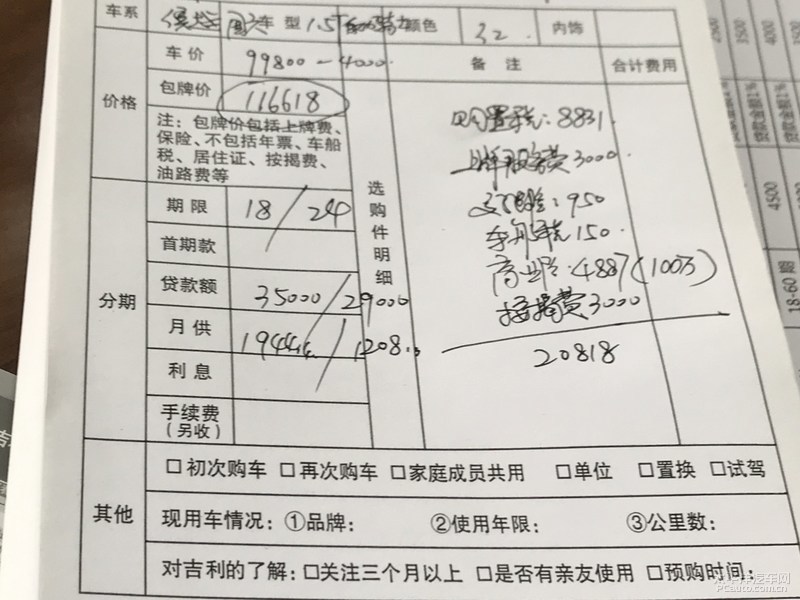 车系 车型 1.5T 颜色 32. 内饰
价格 车价 99800-4000. 备注 合计费用
包牌价 116618
注：包牌价包括上牌费、
保险、不包括年票、车船
税、居住证、按揭费、
油路费等
购置税：8831.
上牌服务费3000.
交强险：950
车船税150.
商业险：4887(100万)
按揭费3000
20818
选购件明细
分期 期限 18/24
首期款
贷款额 35000/29000
月供 1944/1208
利息
手续费
(另收)
其他 □初次购车 □再次购车 □家庭成员共用 □单位 □置换 □试驾
现用车情况：①品牌： ②使用年限： ③公里数：
对吉利的了解：□关注三个月以上 □是否有亲友使用 □预购时间：
3500
4000
4500
18-60期
太平洋汽车网
PCauto.com.cn